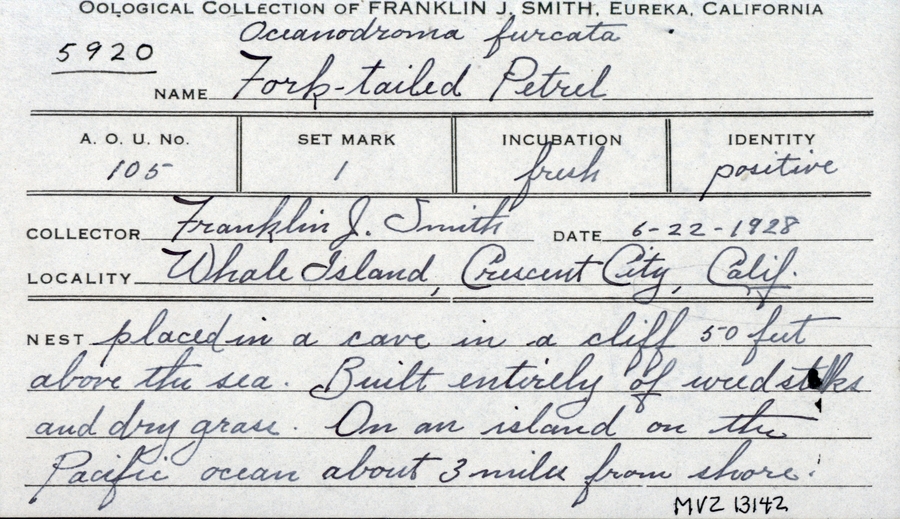 OOLOGICAL COLLECTION OF FRANKLIN J. SMITH, EUREKA, CALIFORNIA
Oceanodroma furcata
5920
NAME Fork-tailed Petrel
A. O. U. No. SET MARK INCUBATION IDENTITY
105 1 fresh positive
COLLECTOR Franklin J. Smith DATE 6-22-1928
LOCALITY Whale Island, Crescent City, Calif.
NEST placed in a cave in a cliff 50 feet
above the sea. Built entirely of weed stalks
and dry grass. On an island on the
Pacific ocean about 3 miles from shore.
MVZ 13142